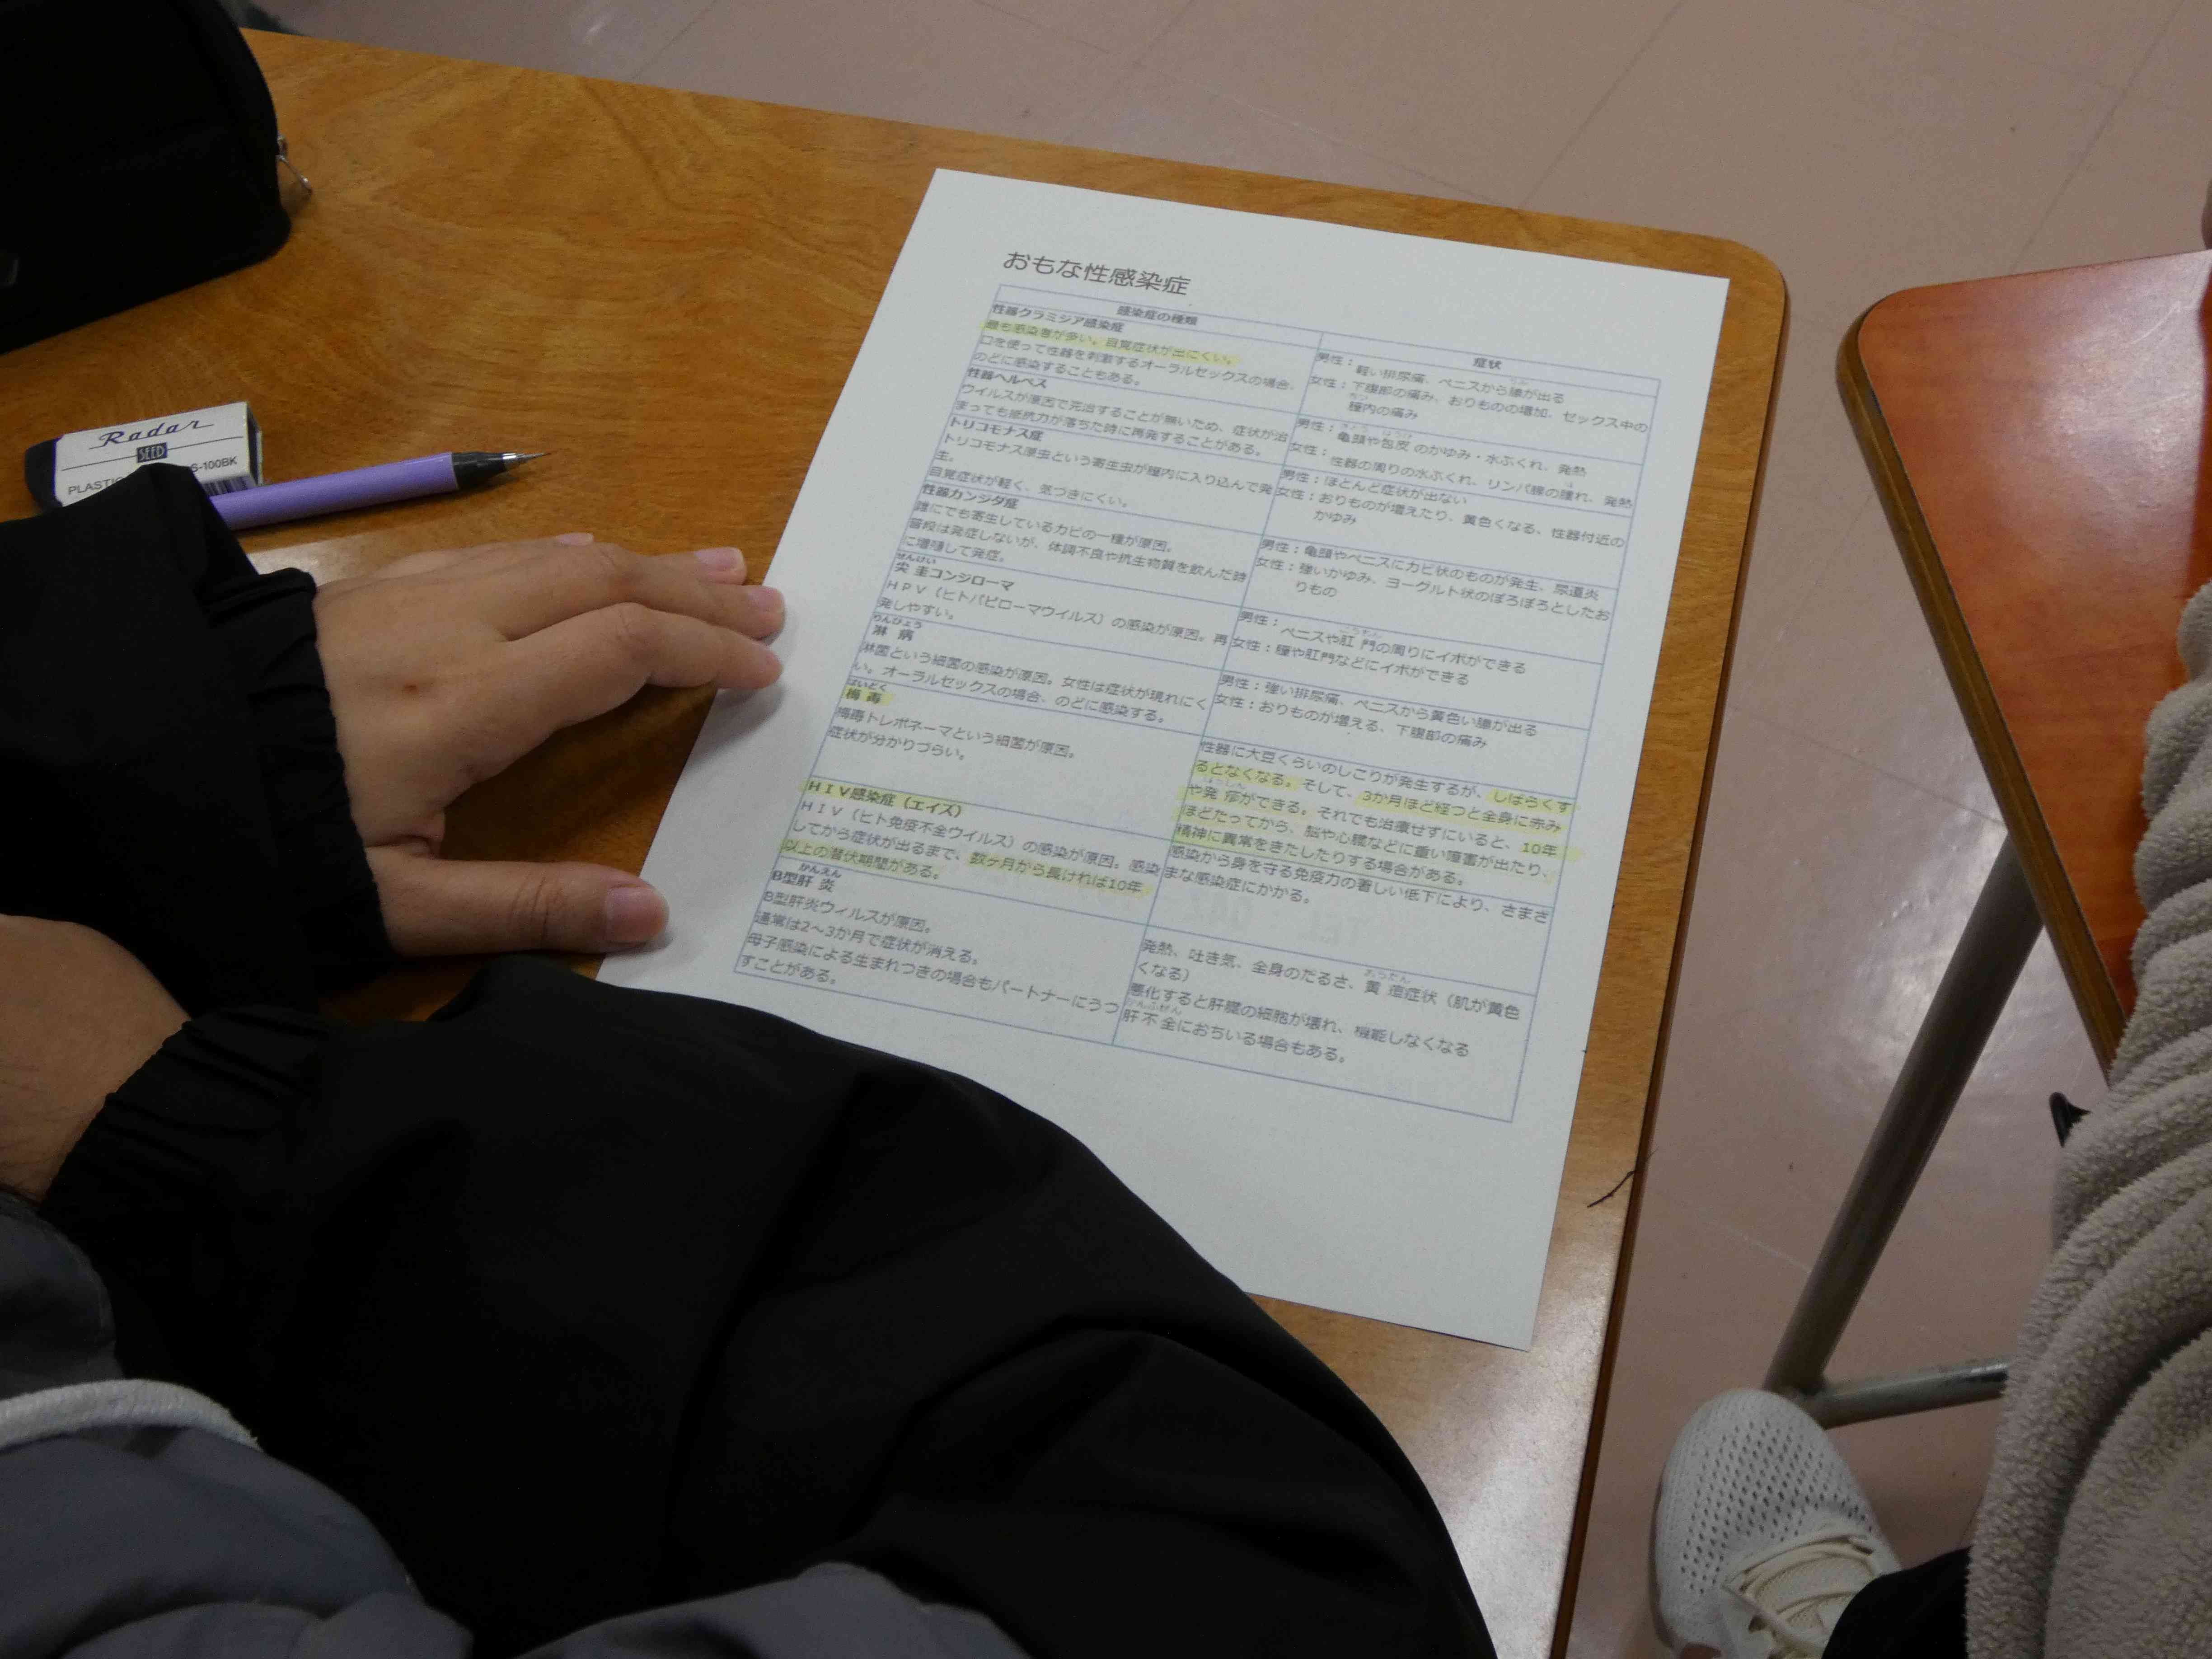 Radar
SEED
PLASTIC
S-100BK
おもな性感染症
感染症の種類
症状
性器クラミジア感染症
最も感染者が多い。自覚症状が出にくい。
口を使って性器を刺激するオーラルセックスの場合、
のどに感染することもある。
男性：軽い排尿痛、ペニスから膿が出る
女性：下腹部の痛み、おりものの増加、セックス中の
膣内の痛み
性器ヘルペス
ウイルスが原因で完治することが無いため、症状が治
まっても抵抗力が落ちた時に再発することがある。
男性：亀頭や包皮のかゆみ・水ぶくれ、発熱
女性：性器の周りの水ぶくれ、リンパ腺の腫れ、発熱
トリコモナス症
トリコモナス原虫という寄生虫が膣内に入り込んで発
生。
自覚症状が軽く、気づきにくい。
男性：ほとんど症状が出ない
女性：おりものが増えたり、黄色くなる、性器付近の
かゆみ
性器カンジダ症
誰にでも寄生しているカビの一種が原因。
普段は発症しないが、体調不良や抗生物質を飲んだ時
に増殖して発症。
男性：亀頭やペニスにカビ状のものが発生、尿道炎
女性：強いかゆみ、ヨーグルト状のぼろぼろとしたお
りもの
せんけい
尖圭コンジローマ
HPV（ヒトパピローマウイルス）の感染が原因。再
発しやすい。
男性：ペニスや肛門の周りにイボができる
女性：膣や肛門などにイボができる
りんびょう
淋病
淋菌という細菌の感染が原因。女性は症状が現れにく
い。オーラルセックスの場合、のどに感染する。
男性：強い排尿痛、ペニスから黄色い膿が出る
女性：おりものが増える、下腹部の痛み
ばいどく
梅毒
梅毒トレポネーマという細菌が原因。
症状が分かりづらい。
性器に大豆くらいのしこりが発生するが、しばらくす
るとなくなる。そして、3か月ほど経つと全身に赤み
や発疹ができる。それでも治療せずにいると、10年
ほどたってから、脳や心臓などに重い障害が出たり、
精神に異常をきたしたりする場合がある。
HIV感染症（エイズ）
HIV（ヒト免疫不全ウイルス）の感染が原因。感染
してから症状が出るまで、数ヶ月から長ければ10年
以上の潜伏期間がある。
感染から身を守る免疫力の著しい低下により、さまざ
まな感染症にかかる。
かんえん
B型肝炎
B型肝炎ウィルスが原因。
通常は2～3か月で症状が消える。
母子感染による生まれつきの場合もパートナーにうつ
すことがある。
発熱、吐き気、全身のだるさ、黄疸症状（肌が黄色
くなる）
悪化すると肝臓の細胞が壊れ、機能しなくなる
かんふぜん
肝不全におちいる場合もある。